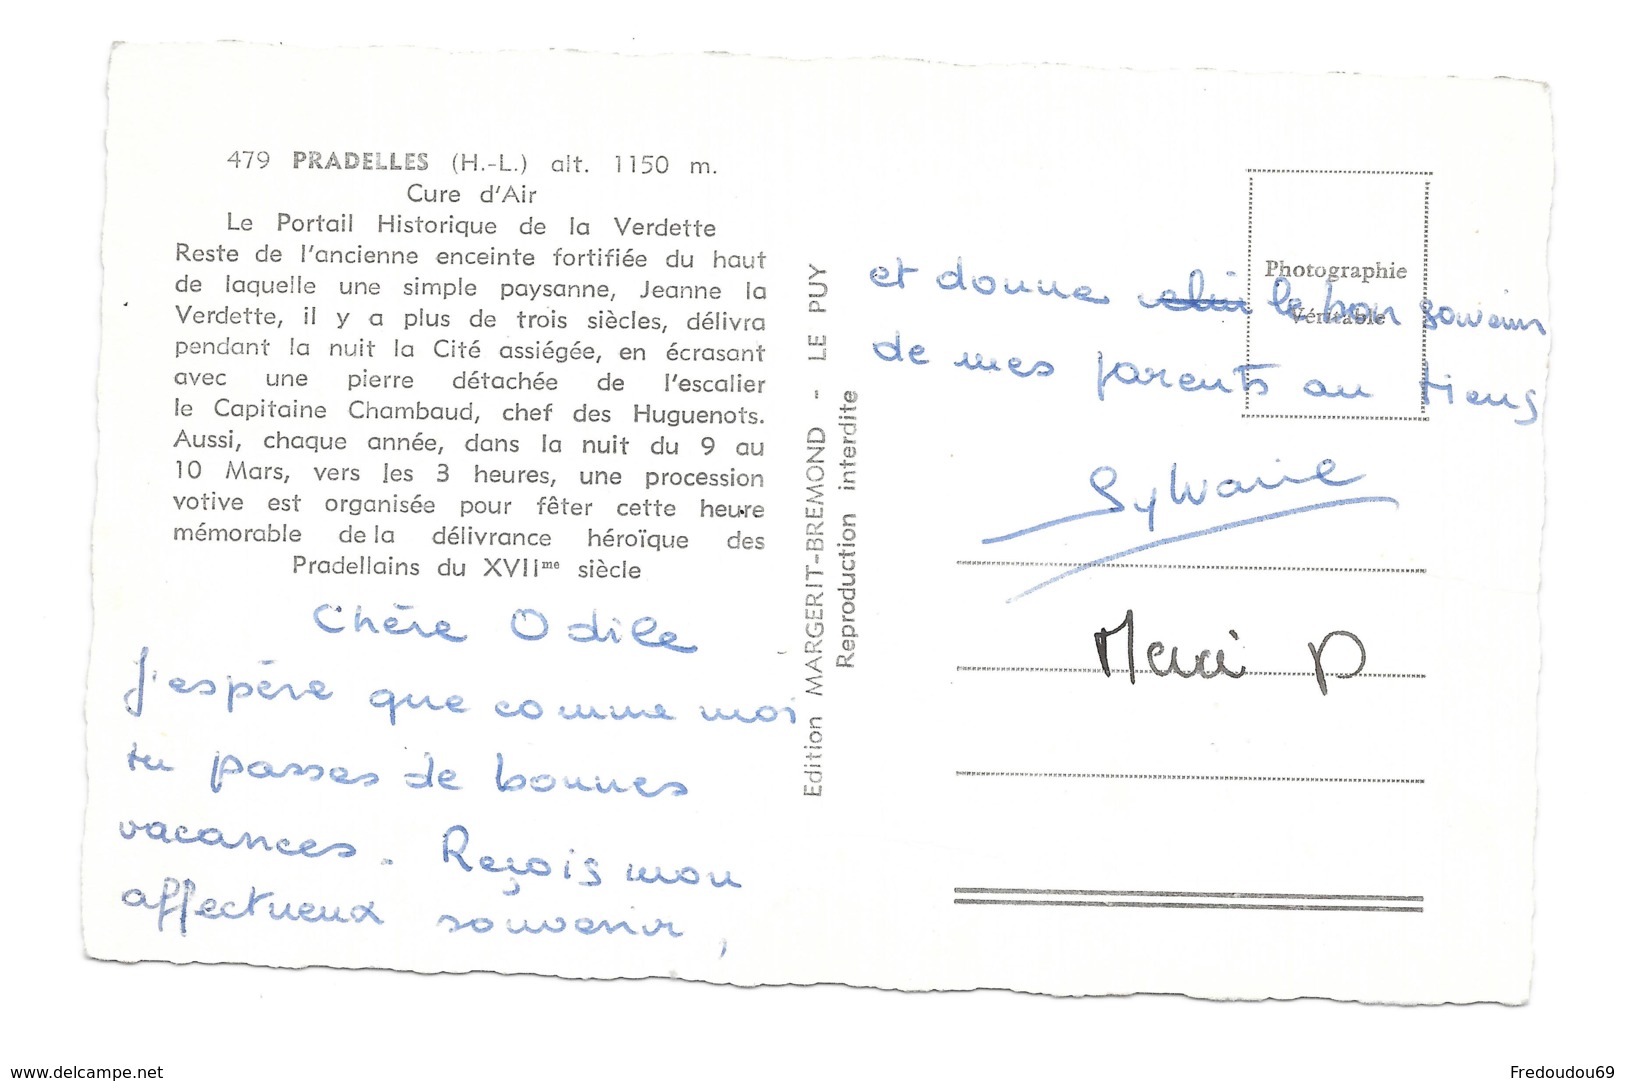 479 PRADELLES (H.-L.) alt. 1150 m.
Cure d'Air
Le Portail Historique de la Verdette
Reste de l'ancienne enceinte fortifiée du haut
de laquelle une simple paysanne, Jeanne la
Verdette, il y a plus de trois siècles, délivra
pendant la nuit la Cité assiégée, en écrasant
avec une pierre détachée de l'escalier
le Capitaine Chambaud, chef des Huguenots.
Aussi, chaque année, dans la nuit du 9 au
10 Mars, vers les 3 heures, une procession
votive est organisée pour fêter cette heure
mémorable de la délivrance héroïque des
Pradellains du XVIIme siècle
Chère Odile
J'espère que comme moi
tu passes de bonnes
vacances. Reçois mon
affectueux souvenir,
Edition MARGERIT-BREMOND - LE PUY
Reproduction interdite
Photographie
Véritable
et donne le bon souvenir
de mes parents au tiens
Sylvaine
Merci D
www.delcampe.net
Fredoudou69